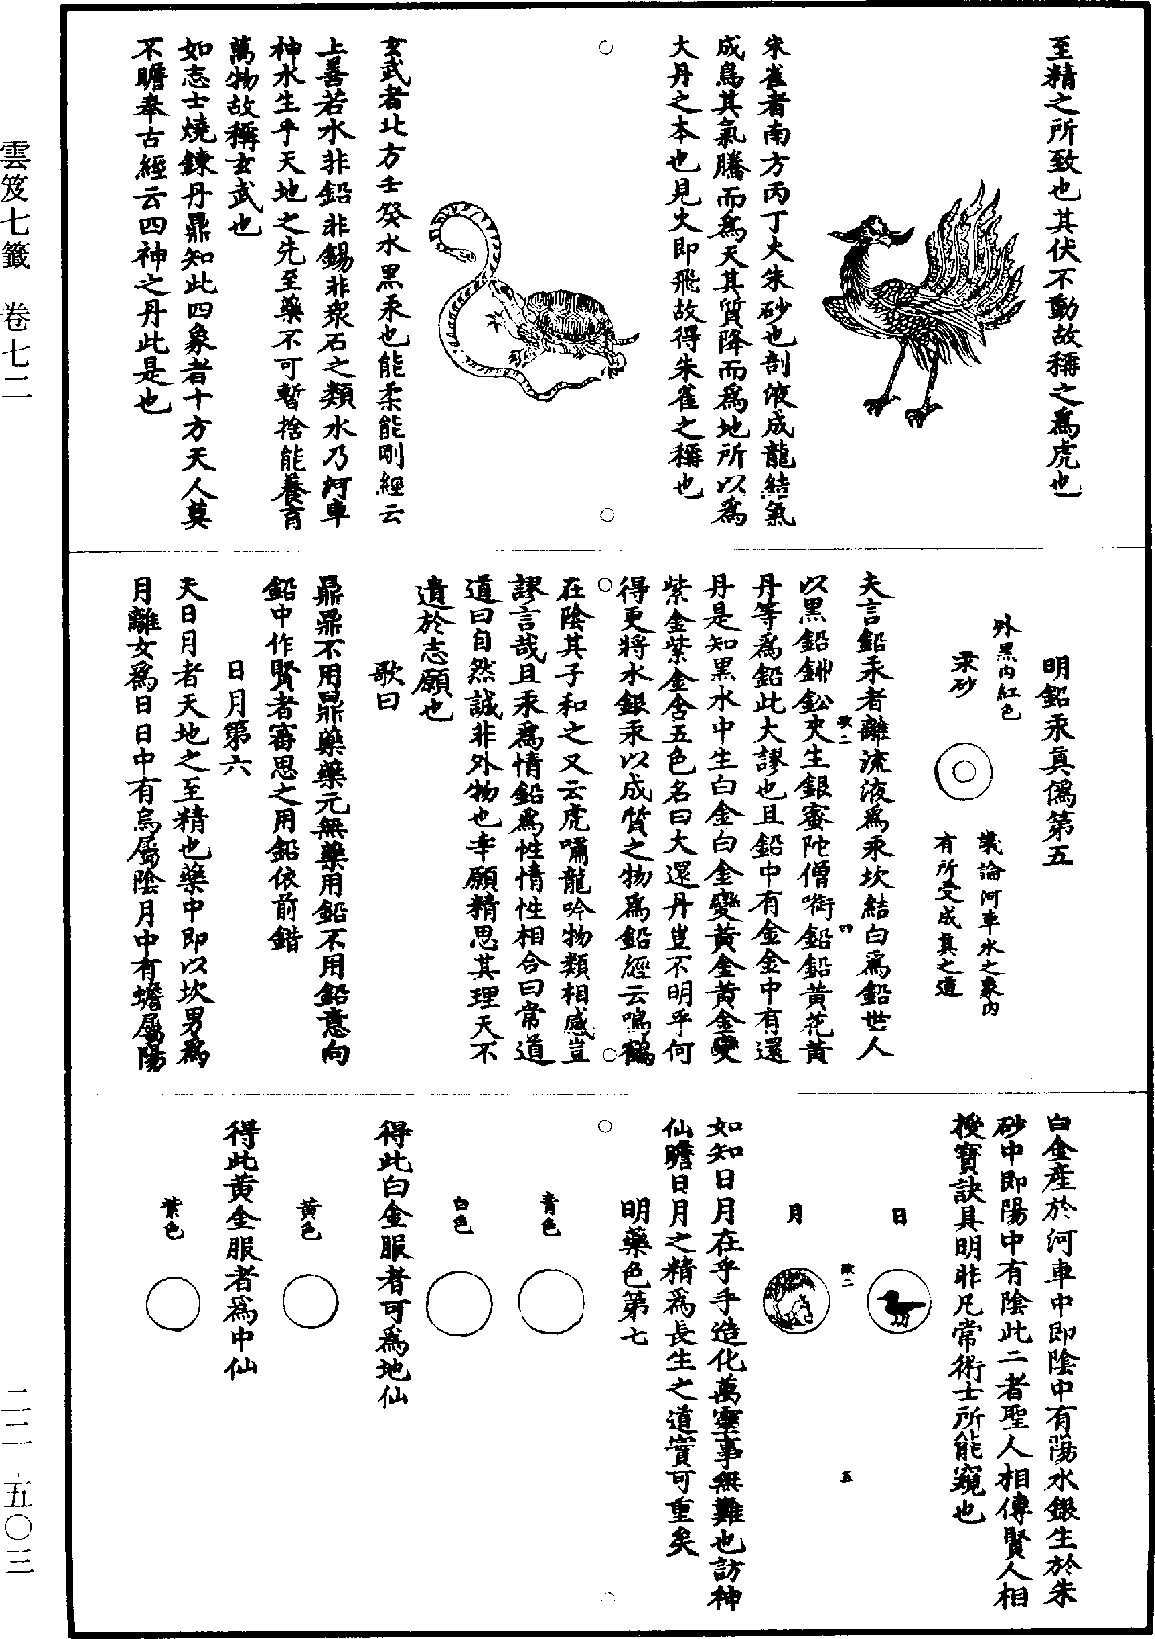 至精之所致也其伏不動故稱之爲虎也
朱雀者南方丙丁火朱砂也剖液成龍結氣
成鳥其氣騰而爲天其質降而爲地所以爲
大丹之本也見火即飛故得朱雀之稱也
玄武者北方壬癸水黑汞也能柔能剛經云
上善若水非鉛非錫非衆石之類水乃河車
神水生乎天地之先至藥不可暫捨能養育
萬物故稱玄武也
如志士燒鍊丹鼎知此四象者十方天人莫
不瞻奉古經云四神之丹此是也
明鉛汞真僞第五
外黑內紅色
汞砂
議論河車水之象內
有所受成真之道
夫言鉛汞者離流液爲汞坎結白爲鉛世人
以黑鉛鉚鈆夾生銀蜜陁僧嘲鉛鉛黃花黃
丹等爲鉛此大謬也且鉛中有金金中有還
丹是知黑水中生白金白金變黃金黃金變
紫金紫金含五色名曰大還丹豈不明乎何
得更將水銀汞以成質之物爲鉛經云鳴鶴
在陰其子和之又云虎嘯龍吟物類相感豈
謬言哉且汞爲情鉛爲性情性相合曰常道
道曰自然誠非外物也幸願精思其理天不
遺於志願也
歌曰
鼎鼎不用鼎藥藥元無藥用鉛不用鉛意向
鉛中作賢者審思之用鉛依前錯
日月第六
夫日月者天地之至精也藥中即以坎男爲
月離女爲日日中有烏屬陰月中有蟾屬陽
白金產於河車中即陰中有陽水銀生於朱
砂中即陽中有陰此二者聖人相傳賢人相
授寶訣具明非凡常術士所能窺也
日
月
如知日月在乎手造化萬靈事無難也訪神
仙瞻日月之精爲長生之道實可重矣
明藥色第七
青色
白色
得此白金服者可爲地仙
黃色
得此黃金服者爲中仙
紫色
雲笈七籤 卷七二
二二 五〇三